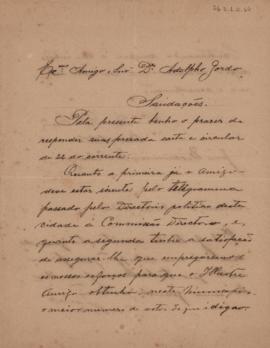 Exmo Amigo e Snr. Dr. Adolpho Gordo.
Saudações.
Pela presente tenho o prazer de
responder sua prezada carta e circular
de 22 do corrente.
Quanto a primeira ja o Amigo
deve estar sciente pelo telegramma
passado pelo Directorio politico desta
cidade á Commissão Directora, e,
quanto a segunda tenho a satisfação
de assegurar-lhe que empregaremos
os nossos esforços para que o Illustre
Amigo obtenha, neste Municipio,
o maior numero de votos de que é digno.